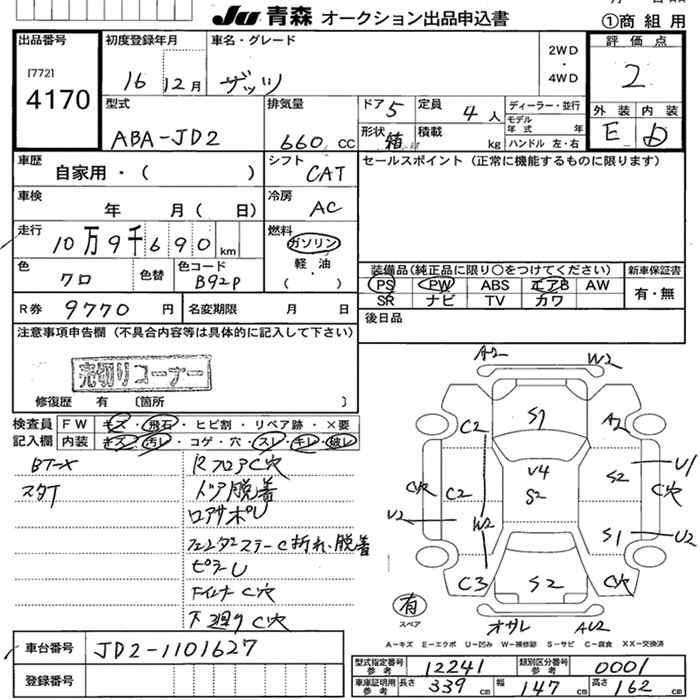 Ju 青森 オークション出品申込書
①商 組 用
出品番号
[772]
4170
初度登録年月
16 12月
車名・グレード
ザッツ
2WD
・
4WD
評 価 点
2
型式
ABA-JD2
排気量
660 cc
ドア 5
定員 4 人
形状 箱
積載 kg
ディーラー・並行
モデル
年 式 年
ハンドル 左・右
外 装
E
内 装
D
車歴
自家用・( )
シフト
CAT
セールスポイント(正常に機能するものに限ります)
車検
年 月( 日)
冷房
AC
走行
10万9千690 km
燃料
ガソリン
軽・油
( )
色
クロ
色替
色コード
B92P
装備品(純正品に限り○をつけてください)
PS PW ABS エアB AW
SR ナビ TV カワ
新車保証書
有・無
R券 9770 円
名変期限 月 日
後日品
注意事項申告欄(不具合内容等は具体的に記入して下さい)
売切りコーナー
修復歴 有 〔箇所 〕
検査員
記入欄
FW キズ・飛石・ヒビ割・リペア跡・×要
内装 キズ・汚レ・コゲ・穴・スレ・キレ・破レ
BT-X
スタT
RフロアC穴
ドア脱着
ロアサポU
フェンダーステーC折れ、脱着
ピラーU
FインナC穴
下廻りC穴
A2
W2
C2
S1
A2
U1
S2
C穴
C穴
C2
U4
S2
U2
W2
S1
U2
C3
S2
C穴
有
スペア
オサレ
AU2
A-キズ E-エクボ U-凹み W-補修跡 S-サビ C-腐食 XX-交換済
車台番号
JD2-1101627
登録番号
型式指定番号
参 考
12241
類別区分番号
参 考
0001
車庫証明用
参 考
長さ 339 cm
幅 147 cm
高さ 162 cm